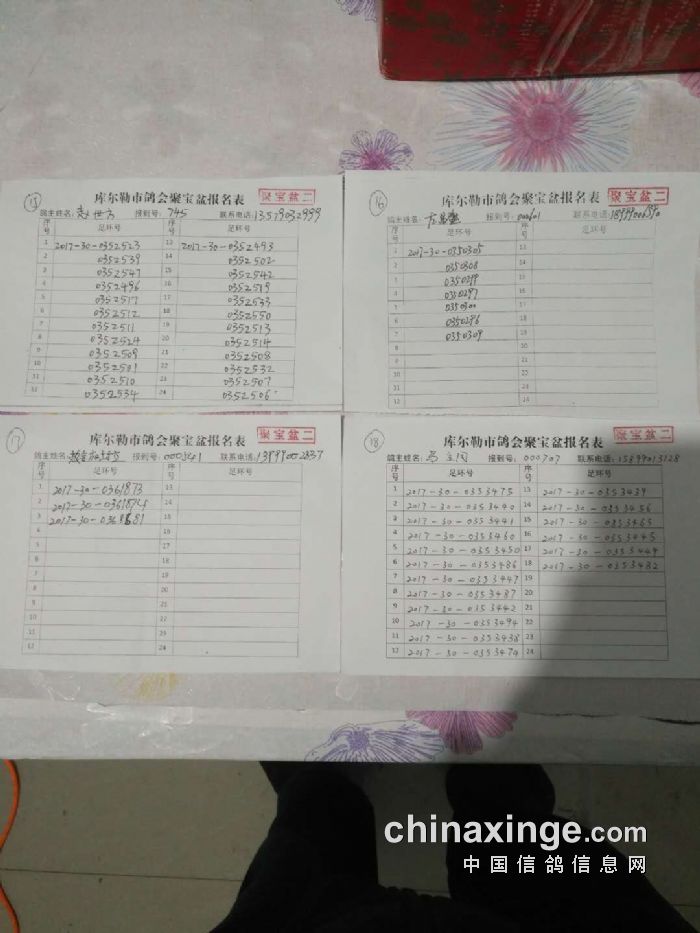 15 库尔勒市鸽会聚宝盆报名表 聚宝盆二
鸽主姓名: 赵世方 报到号: 745 联系电话: 13579032999
序号 足环号 序号 足环号
1 2017-30-0352523 13 2017-30-0352493
2 0352539 14 0352502
3 0352547 15 0352542
4 0352496 16 0352519
5 0352517 17 0352533
6 0352512 18 0352550
7 0352511 19 0352513
8 0352524 20 0352514
9 0352509 21 0352508
10 0352501 22 0352532
11 0352510 23 0352507
12 0352534 24 0352506
16 库尔勒市鸽会聚宝盆报名表 聚宝盆二
鸽主姓名: 报到号: 000601 联系电话:
序号 足环号 序号 足环号
1 2017-30-0350305 13
2 0350308 14
3 0350299 15
4 0350297 16
5 0350300 17
6 0350296 18
7 0350309 19
8 20
9 21
10 22
11 23
12 24
17 库尔勒市鸽会聚宝盆报名表 聚宝盆二
鸽主姓名: 报到号: 联系电话: 13999002837
序号 足环号 序号 足环号
1 2017-30-0361873 13
2 2017-30- 14
3 2017-30- 15
4 16
5 17
6 18
7 19
8 20
9 21
10 22
11 23
12 24
18 库尔勒市鸽会聚宝盆报名表 聚宝盆二
鸽主姓名: 马立国 报到号: 000707 联系电话: 15399013128
序号 足环号 序号 足环号
1 2017-30-0353475 13 2017-30-0353439
2 2017-30-0353440 14 2017-30-0353456
3 2017-30-0353441 15 2017-30-0353465
4 2017-30-0353460 16 2017-30-0353445
5 2017-30-0353450 17 2017-30-0353444
6 2017-30-0353486 18 2017-30-0353482
7 2017-30-0353447 19
8 2017-30-0353487 20
9 2017-30-0353442 21
10 2017-30-0353494 22
11 2017-30-0353438 23
12 2017-30-0353474 24
chinaxinge.com
中国信鸽信息网